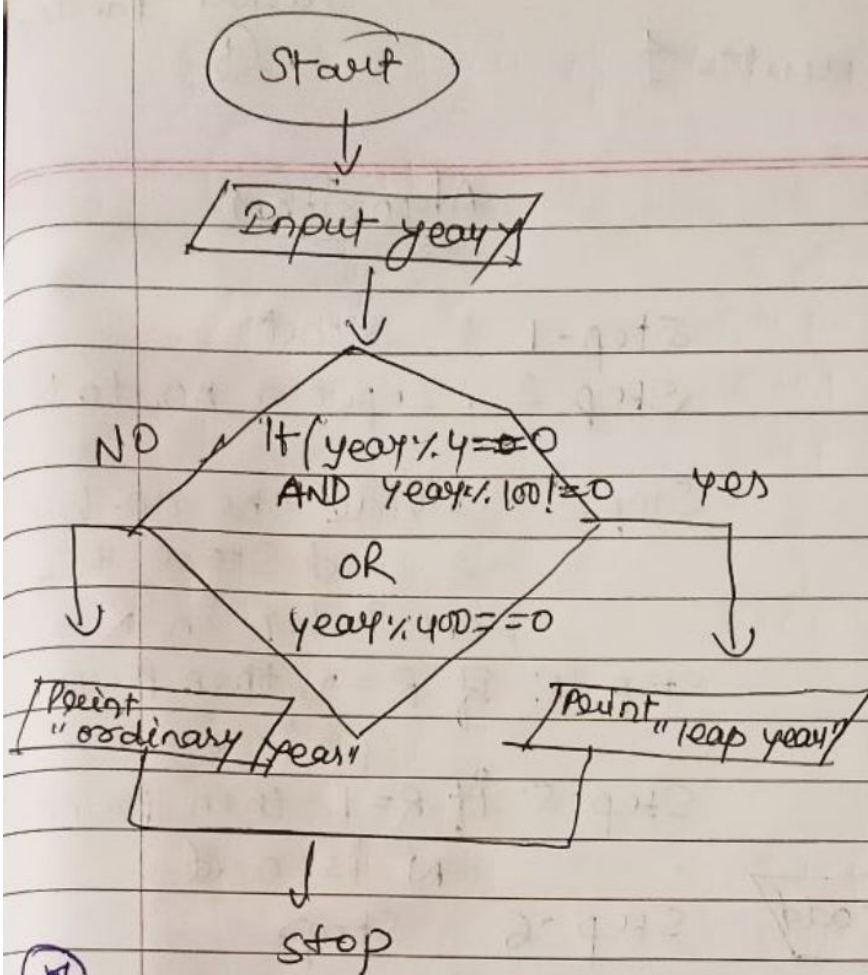 Start
Input year
NO
If (year % 4 == 0
AND year % 100 != 0
yes
OR
year % 400 == 0
Print
"ordinary year"
Print "leap year"
stop